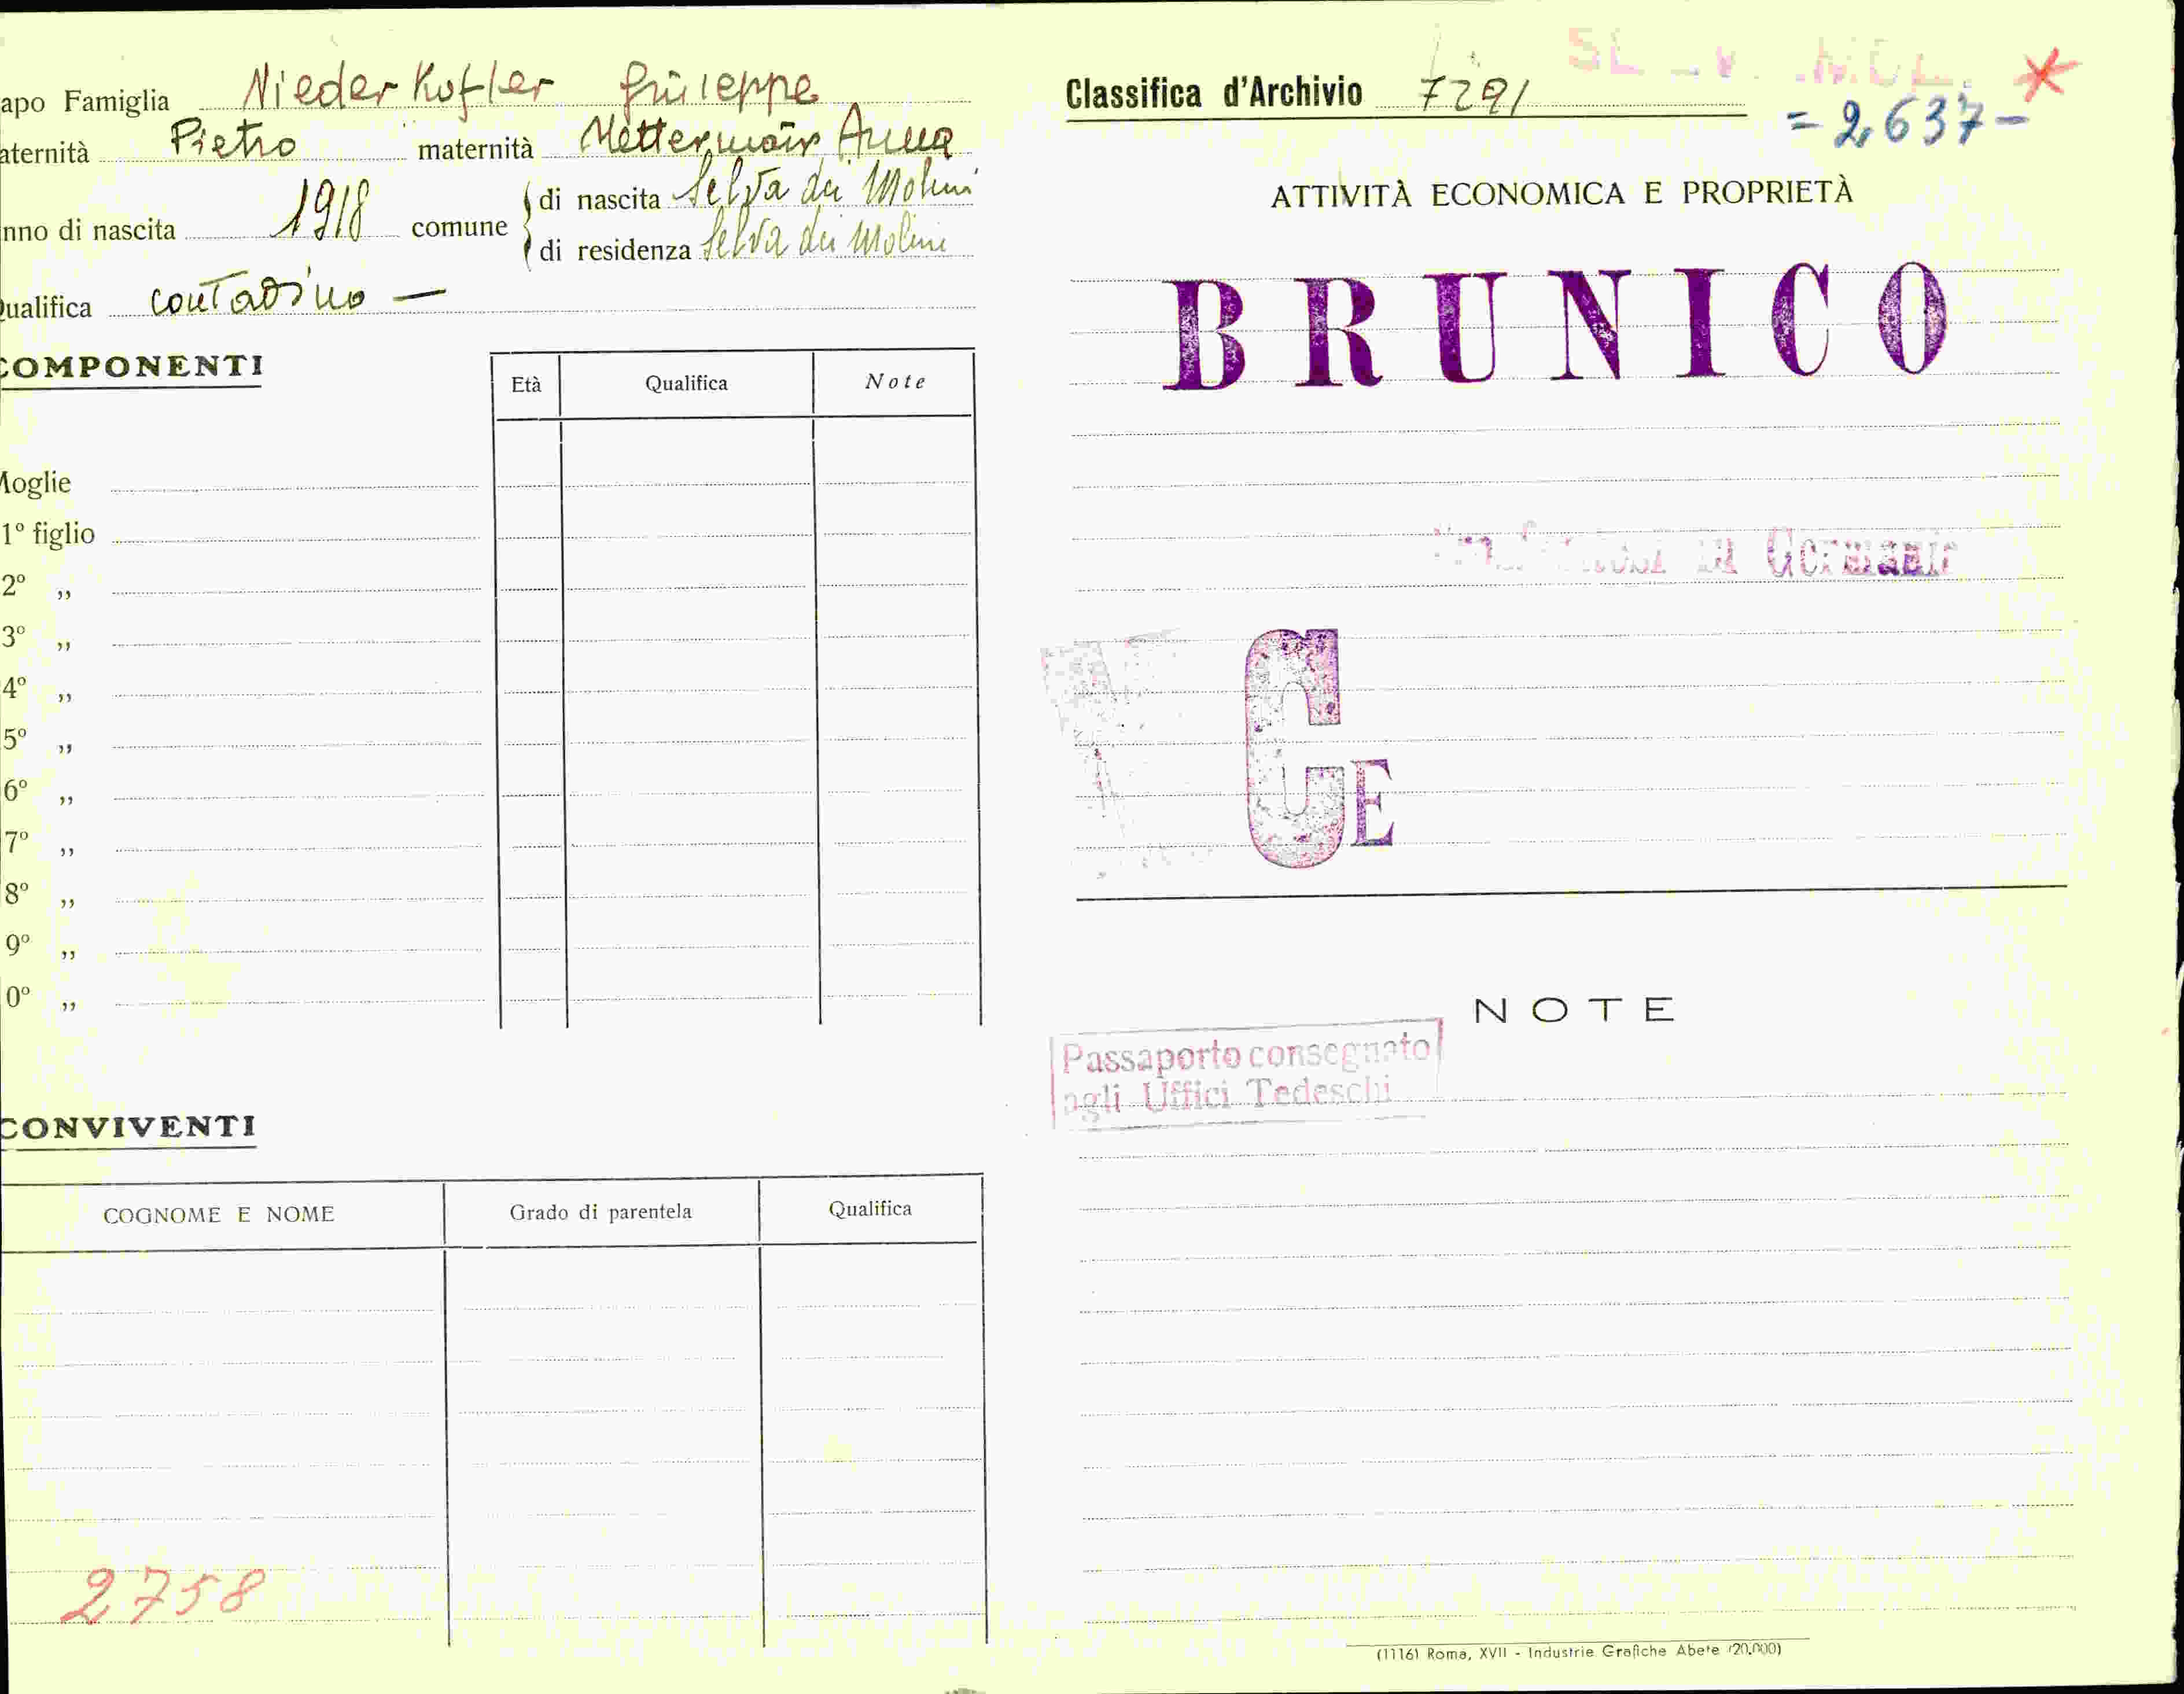 apo Famiglia Niederkofler Giuseppe
aternità Pietro maternità Mettermair Anna
nno di nascita 1918 comune di nascita Selva dei Molini
di residenza Selva dei Molini
Qualifica contadino —
COMPONENTI
Età Qualifica Note
Moglie
1º figlio
2º „
3º „
4º „
5º „
6º „
7º „
8º „
9º „
0º „
CONVIVENTI
COGNOME E NOME Grado di parentela Qualifica
2758
Classifica d'Archivio 7291
= 2,637 -
ATTIVITÀ ECONOMICA E PROPRIETÀ
BRUNICO
in Germania
CE
NOTE
Passaporto consegnato
agli Uffici Tedeschi
(1116) Roma, XVII - Industrie Grafiche Abete (20.000)